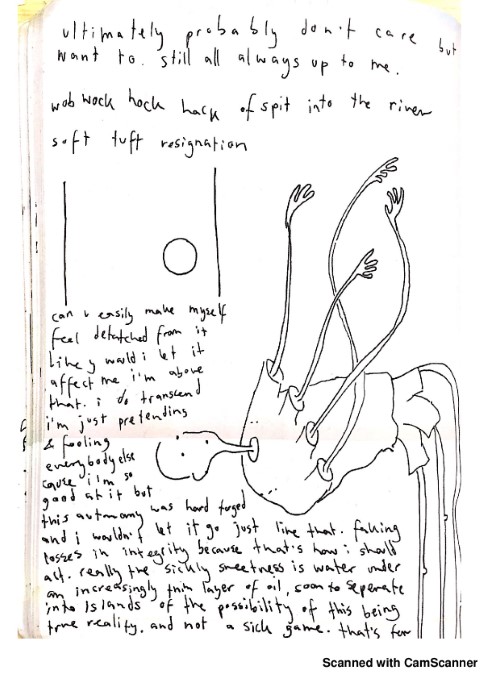 ultimately probably don't care but
want to. still all always up to me.
wob wock hock hack of spit into the river
soft tuft resignation
can v easily make myself
feel detatched from it
like y would i let it
affect me i'm above
that. i do transcend
i'm just pretending
& fooling
everybody else
cause i'm so
good at it but
this autonomy was hard forged
and i wouldn't let it go just like that. faking
losses in integrity because that's how i should
act. really the sickly sweetness is water under
an increasingly thin layer of oil, soon to seperate
into islands of the possibility of this being
true reality. and not a sick game. that's fun
Scanned with CamScanner